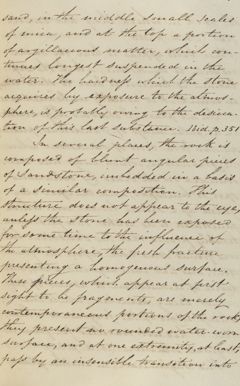 sand, in the middle small scales
of mica, and at the top a portion
of argillaceous matter, which con-
tinues longest suspended in the
water. The hardness which the stone
acquires by exposure to the atmos-
phere, is probably owing to the desicca-
tion of this last substance. Ibid. p. 351
In several places, the rock is
composed of blunt angular pieces
of sandstone, imbedded in a basis
of a similar composition. This
structure does not appear to the eye,
unless the stone has been exposed
for some time to the influence of
the atmosphere, the fresh fracture
presenting a homogenous surface.
These pieces, which appear at first
sight to be fragments, are merely
contemporaneous portions of the rock;
they present no rounded water worn
surface, and at one extremity, at least,
pass by an insensible transition into